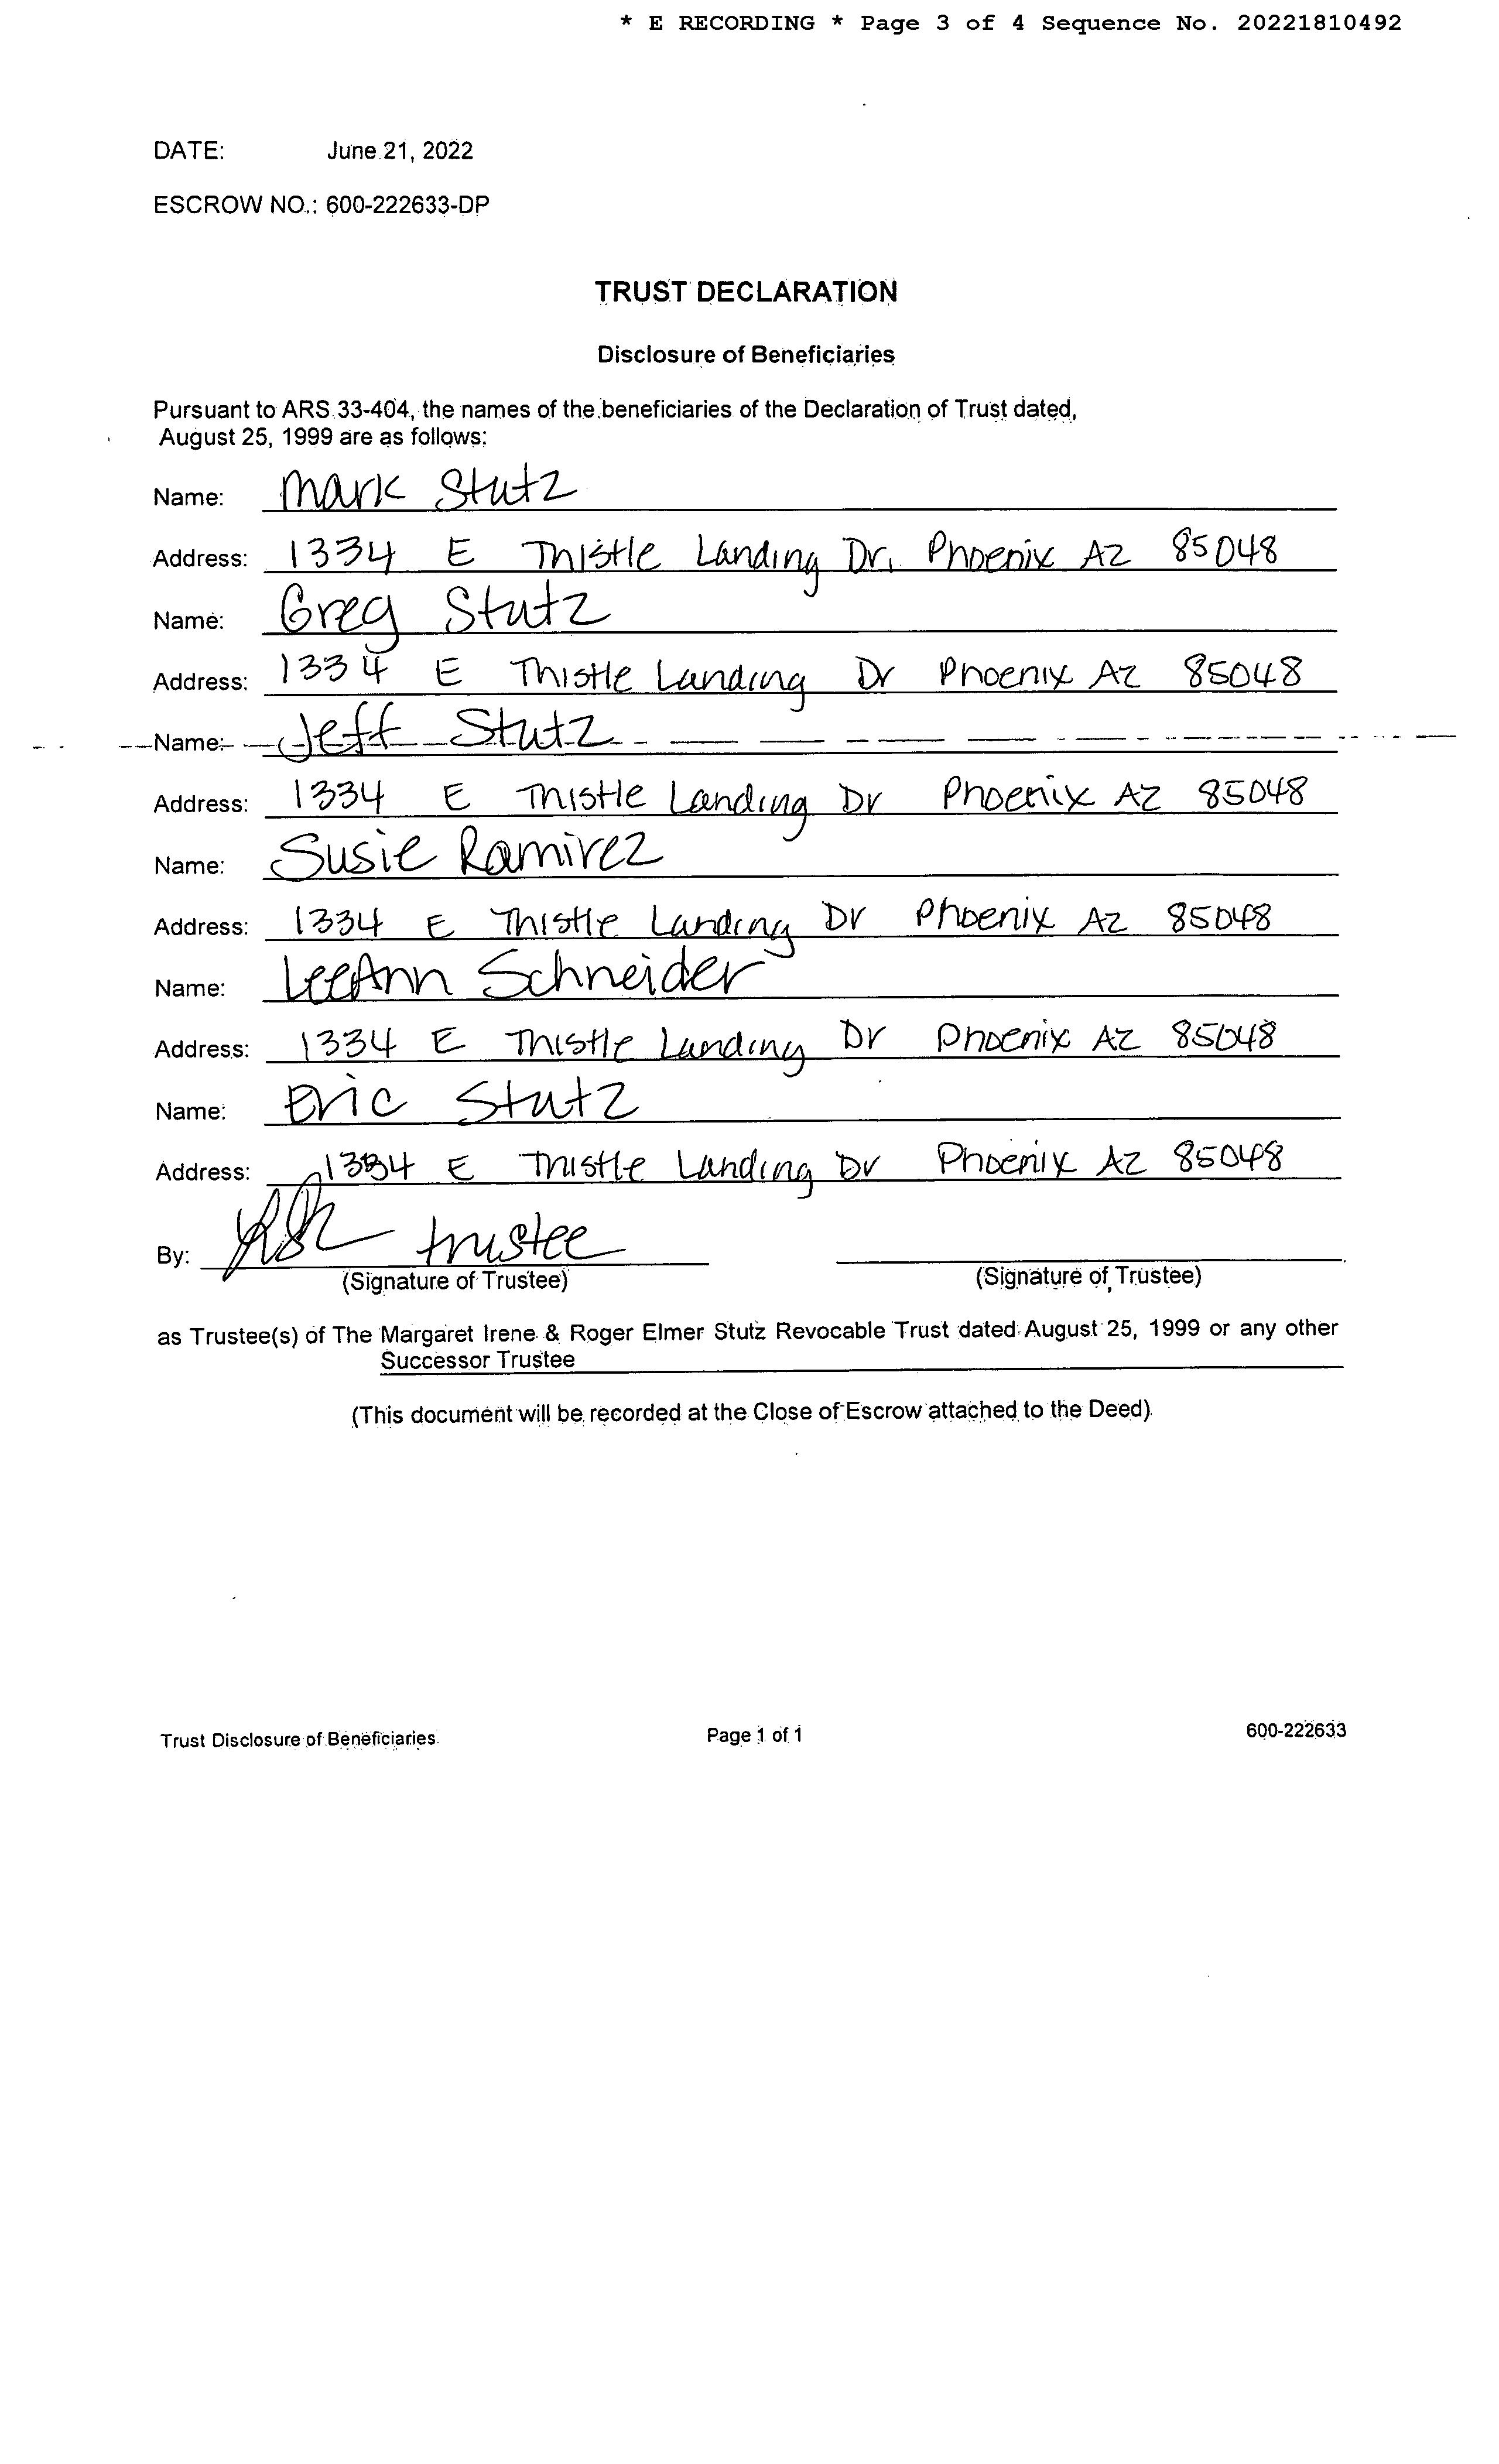 * E RECORDING * Page 3 of 4 Sequence No. 20221810492
DATE: June 21, 2022
ESCROW NO.: 600-222633-DP
TRUST DECLARATION
Disclosure of Beneficiaries
Pursuant to ARS 33-404, the names of the beneficiaries of the Declaration of Trust dated,
August 25, 1999 are as follows:
Name: Mark Stutz
Address: 1334 E Thistle Landing Dr. Phoenix AZ 85048
Name: Greg Stutz
Address: 1334 E Thistle Landing Dr Phoenix AZ 85048
Name: Jeff Stutz
Address: 1334 E Thistle Landing Dr Phoenix AZ 85048
Name: Susie Ramirez
Address: 1334 E Thistle Landing Dr Phoenix AZ 85048
Name: LeeAnn Schneider
Address: 1334 E Thistle Landing Dr Phoenix AZ 85048
Name: Eric Stutz
Address: 1334 E Thistle Landing Dr Phoenix AZ 85048
By: trustee
(Signature of Trustee) (Signature of Trustee)
as Trustee(s) of The Margaret Irene & Roger Elmer Stutz Revocable Trust dated August 25, 1999 or any other
Successor Trustee
(This document will be recorded at the Close of Escrow attached to the Deed)
Trust Disclosure of Beneficiaries Page 1 of 1 600-222633